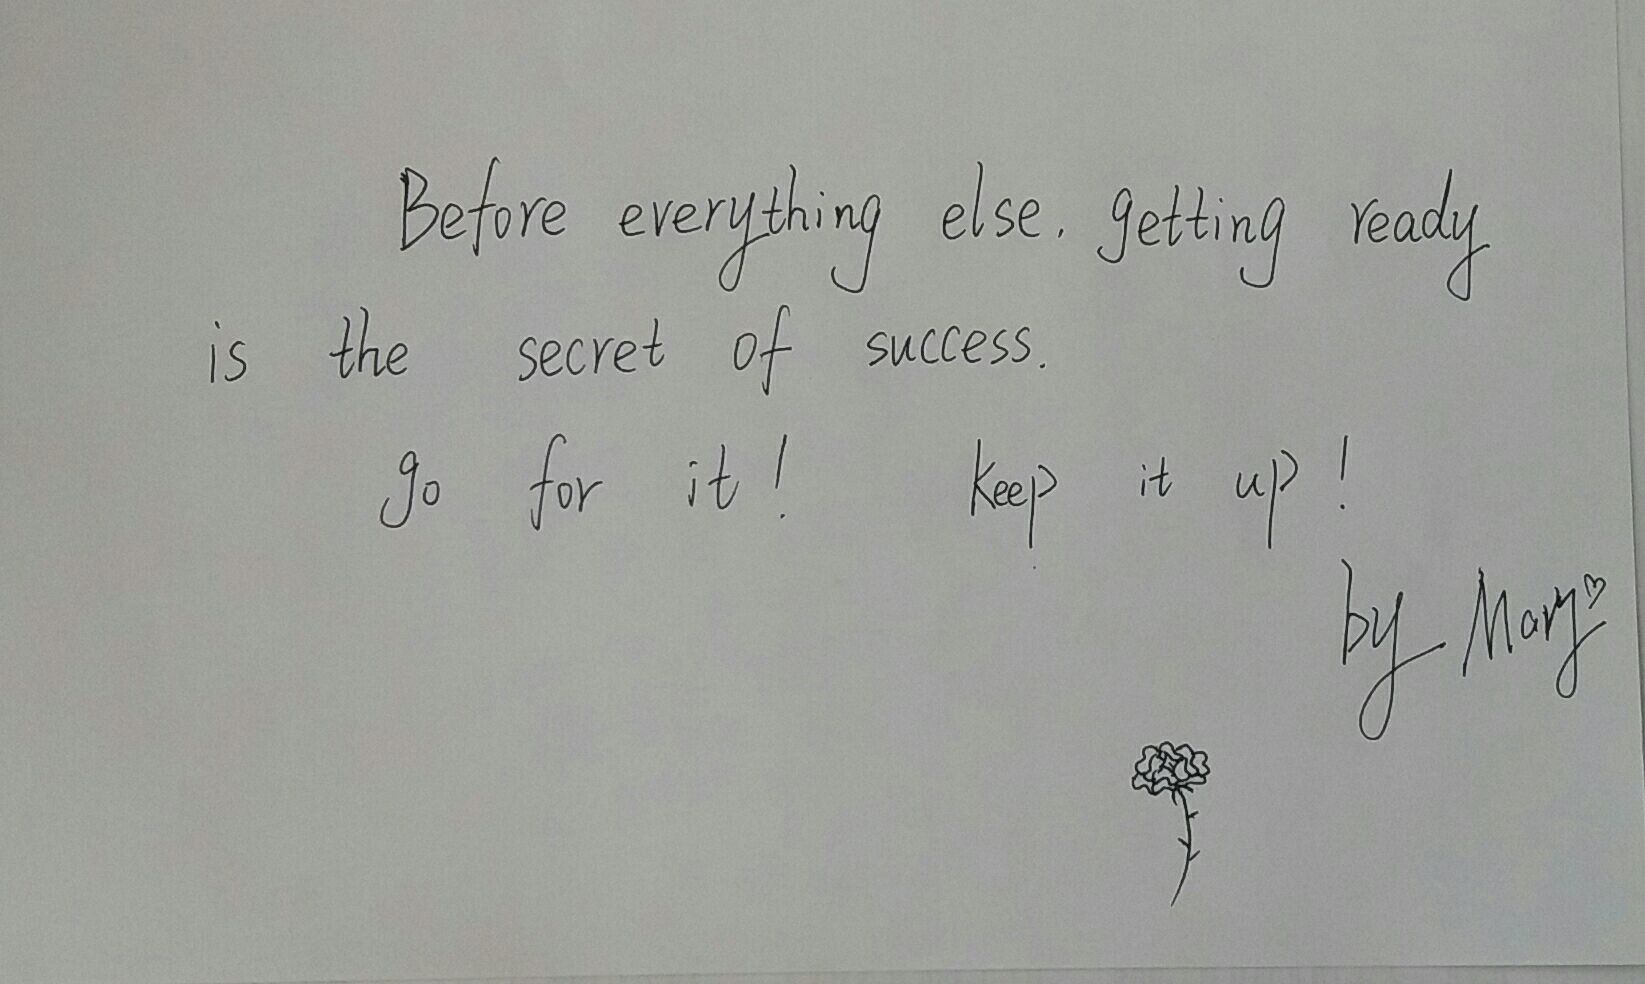 Before everything else, getting ready
is the secret of success.
go for it! keep it up!
by Mary